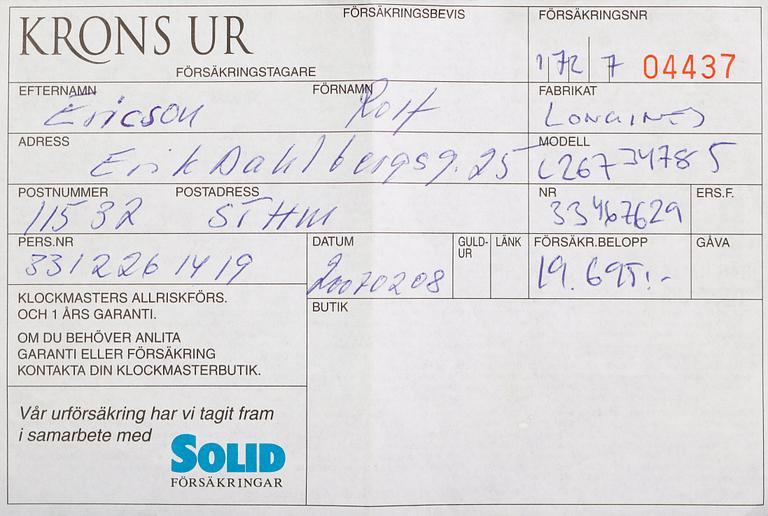 KRONS UR
FÖRSÄKRINGSBEVIS
FÖRSÄKRINGSNR
172 7 04437
FÖRSÄKRINGSTAGARE
EFTERNAMN FÖRNAMN FABRIKAT
Ericson Rolf LONGINES
ADRESS MODELL
Erik Dahlbergsg. 25 L26734785
POSTNUMMER POSTADRESS NR ERS.F.
115 32 STHM 33467629
PERS.NR DATUM GULD-UR LÄNK FÖRSÄKR.BELOPP GÅVA
331226 1419 20070208 19.695:-
KLOCKMASTERS ALLRISKFÖRS.
OCH 1 ÅRS GARANTI.
OM DU BEHÖVER ANLITA
GARANTI ELLER FÖRSÄKRING
KONTAKTA DIN KLOCKMASTERBUTIK.
BUTIK
Vår urförsäkring har vi tagit fram
i samarbete med
SOLID
FÖRSÄKRINGAR